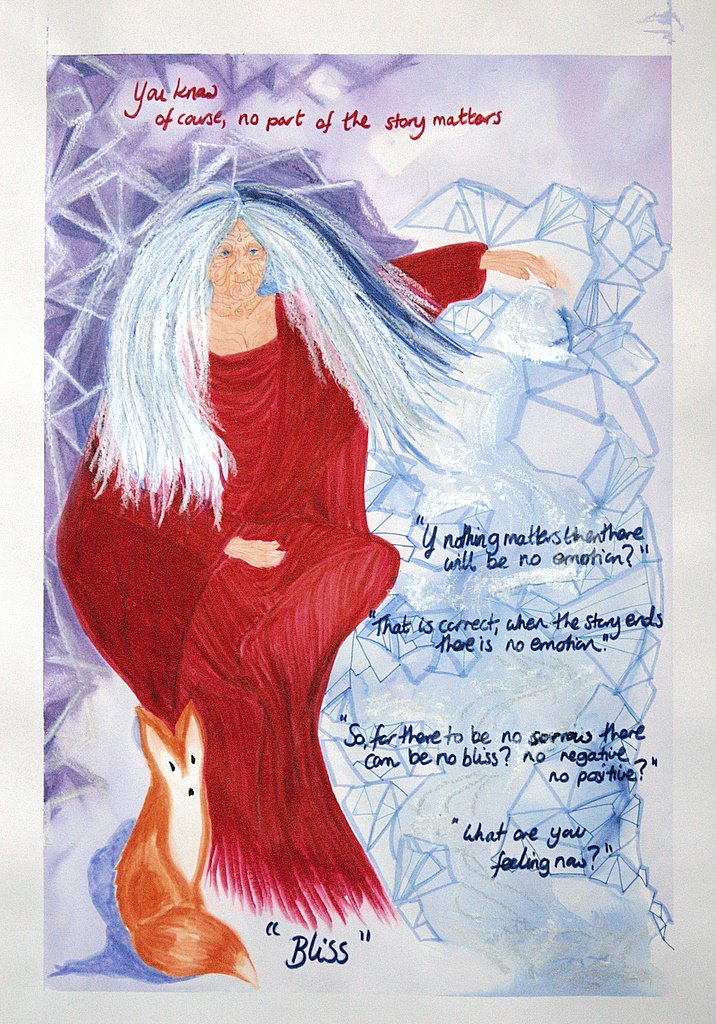 You know
of course, no part of the story matters
"If nothing matters then there
will be no emotion?"
"That is correct, when the story ends
there is no emotion."
"So, for there to be no sorrow there
can be no bliss? no negative
no positive?"
"What are you
feeling now?"
"Bliss"